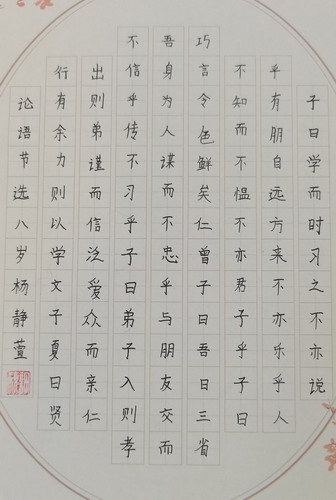 子曰学而时习之不亦说
乎有朋自远方来不亦乐乎人
不知而不愠不亦君子乎子曰
巧言令色鲜矣仁曾子曰吾日三省
吾身为人谋而不忠乎与朋友交而
不信乎传不习乎子曰弟子入则孝
出则弟谨而信泛爱众而亲仁
行有余力则以学文子夏曰贤
论语节选八岁杨静萱